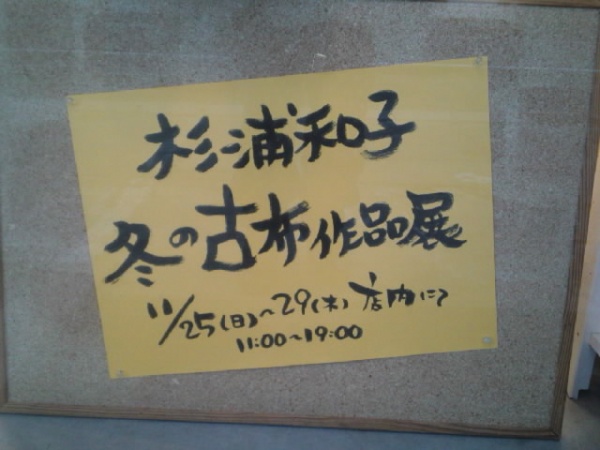 杉浦和子
冬の古布作品展
11/25(日)～29(木) 店内にて
11:00～19:00